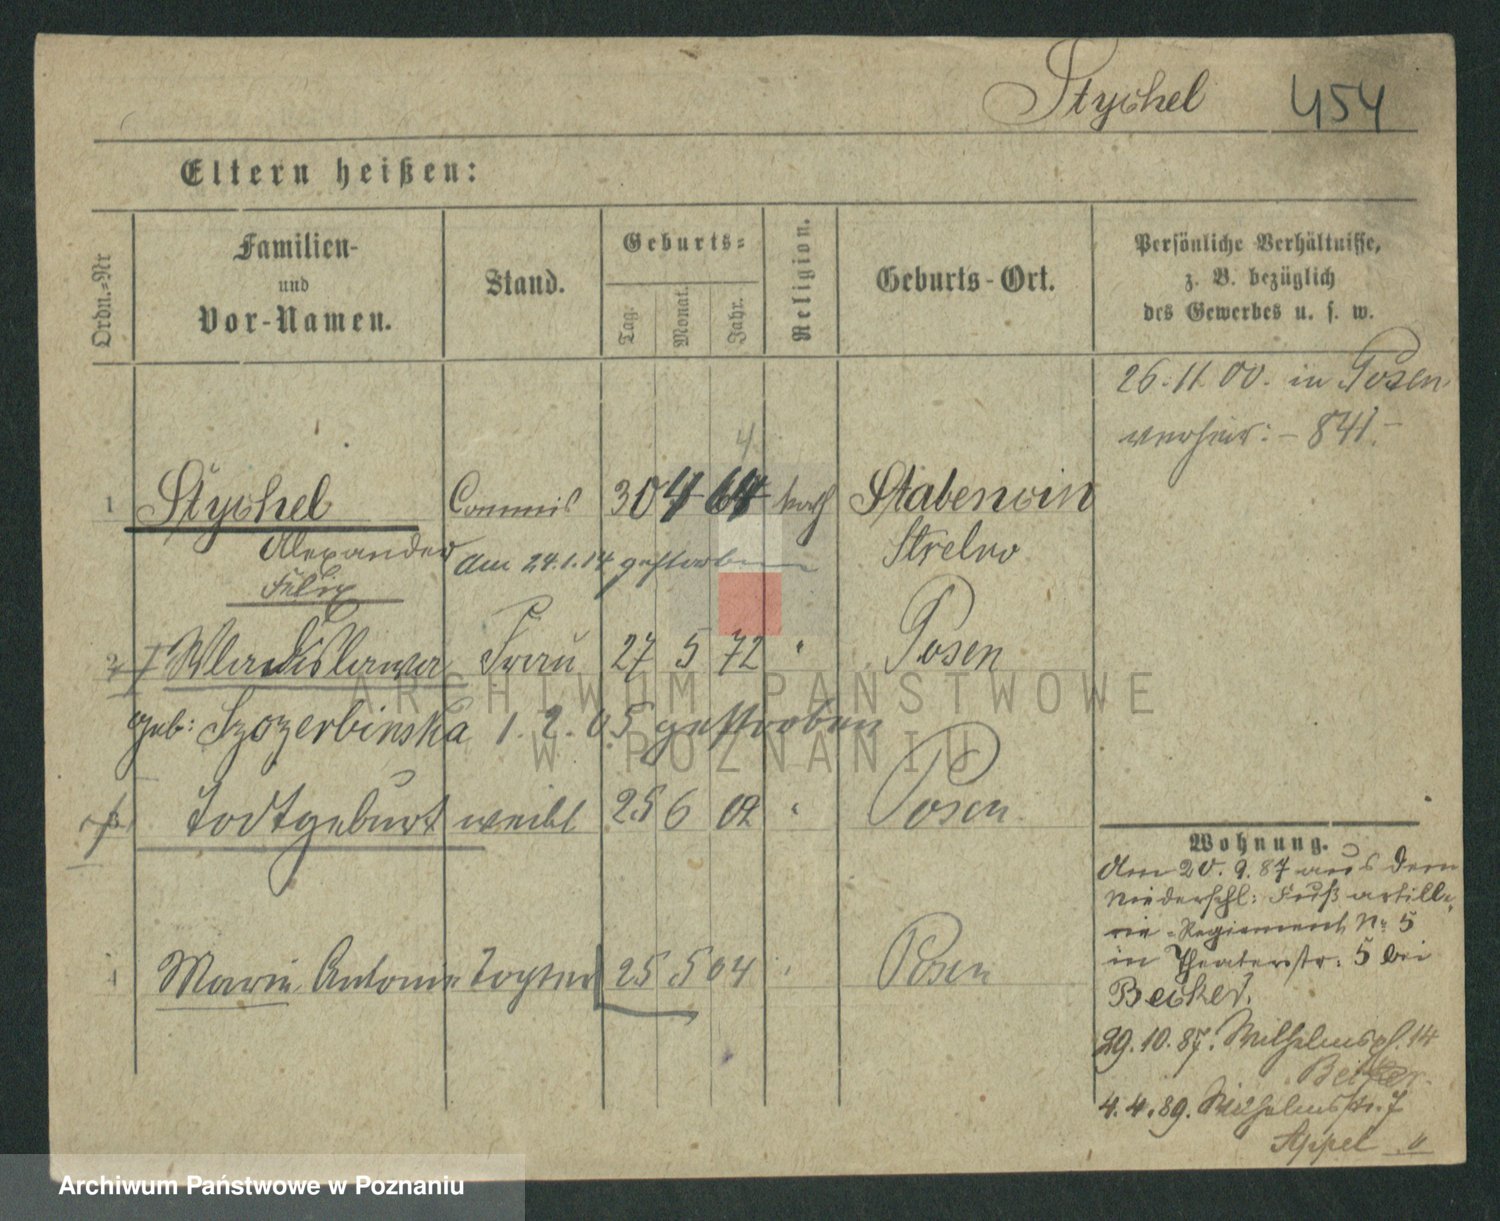 Stychel 454
Eltern heißen:
Ordn.-Nr
Familien-
und
Vor-Namen.
Stand.
Geburts-
Tag.
Monat.
Jahr.
Religion.
Geburts-Ort.
Persönliche Verhältnisse,
z. B. bezüglich
des Gewerbes u. s. w.
26.11.00. in Posen
verheir: - 841.-
4
1 Stychel Commis 30 4 64 kath
Strelno
Alexander am 24.1.14 gestorben
Felix
2 Wladislawa Frau 27 5 72 " Posen
geb: Szczerbinska 1.2.05 gestorben
Todtgeburt weibl 25 6 02 " Posen.
Marie Antonie Tochter 25 5 04 " Posen
Wohnung.
Am 20.9.87 aus dem
Niederschl: Fußartille-
rie-Regiement No 5
in Theaterstr: 5 bei
Becker.
29.10.87. Wilhelmspl. 14
Becker.
4.4.89. Wilhelmsstr. 7
Appel "
ARCHIWUM PAŃSTWOWE
W POZNANIU
Archiwum Państwowe w Poznaniu